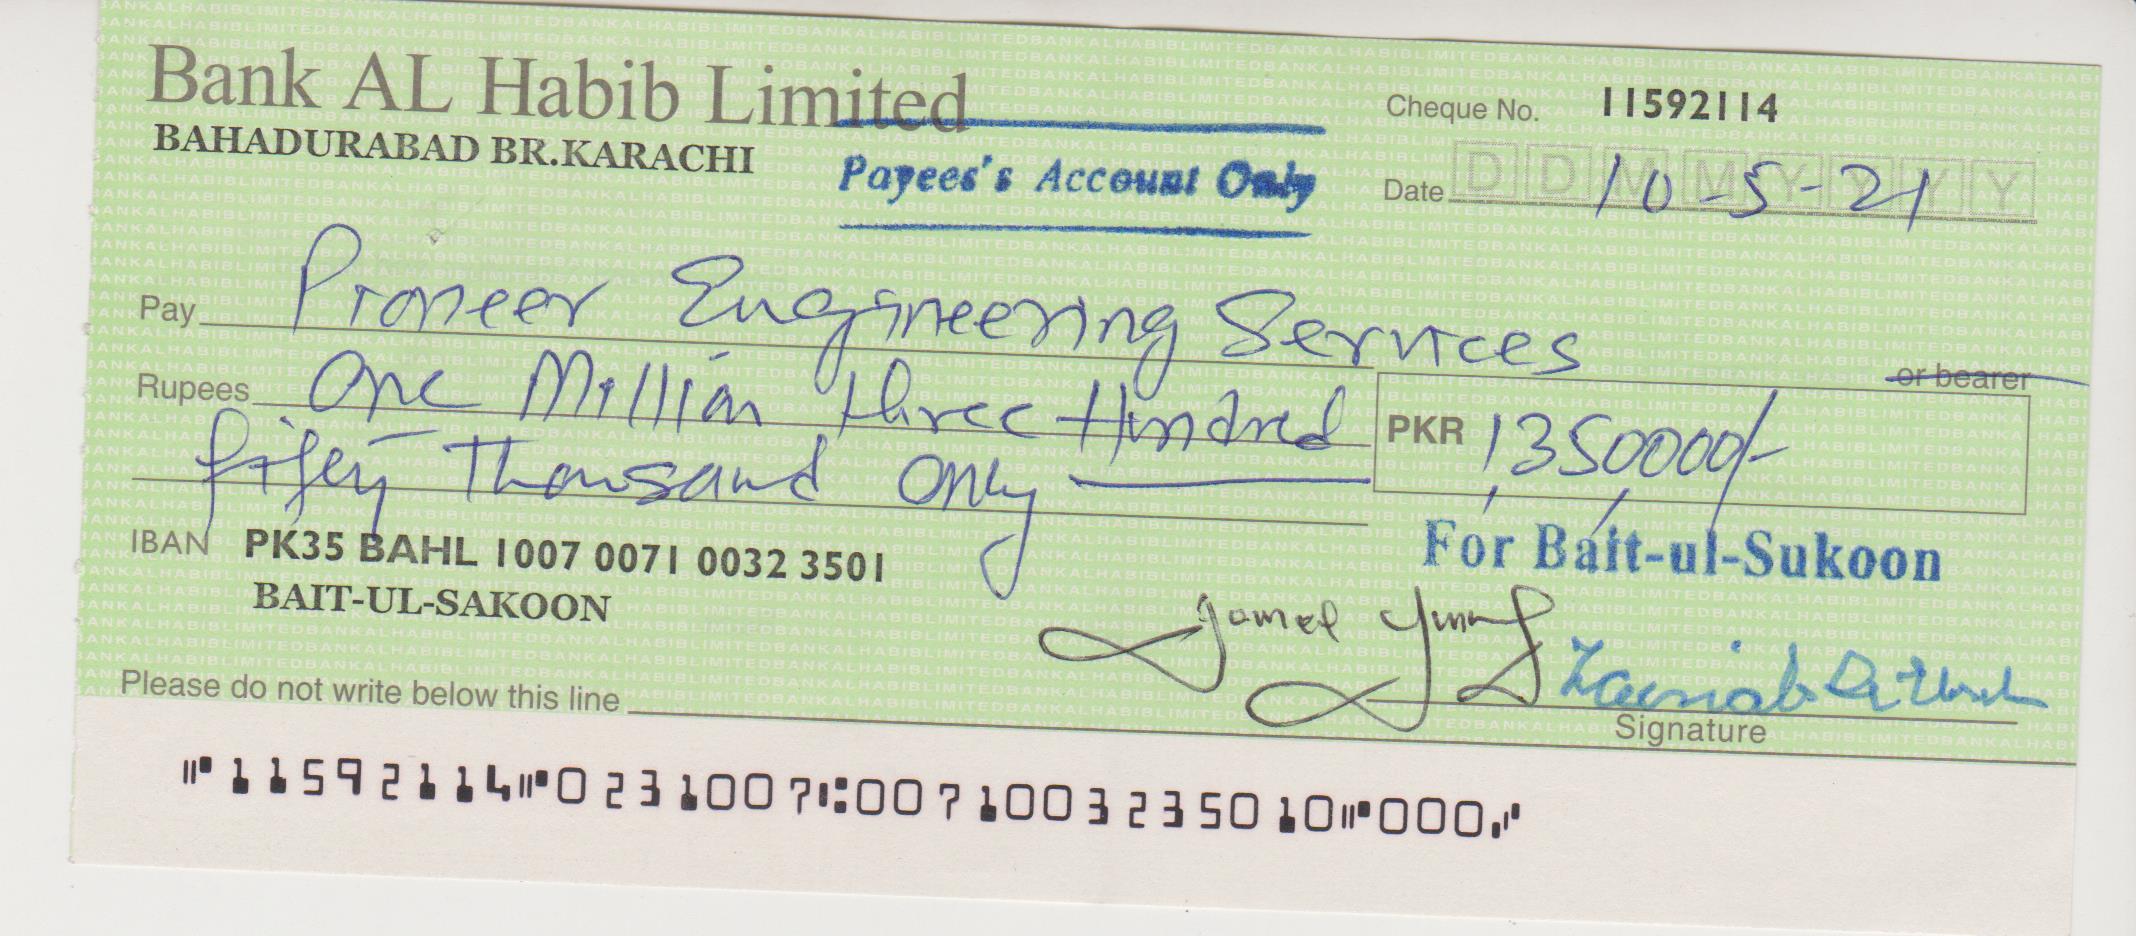 Bank AL Habib Limited
BAHADURABAD BR.KARACHI
Payees's Account Only
Cheque No. 11592114
Date DDMMYYYY 10-5-21
Pay Pioneer Engineering Services
or bearer
Rupees One Million three Hundred
fifty Thousand only
PKR 1,350,000/-
IBAN PK35 BAHL 1007 0071 0032 3501
BAIT-UL-SAKOON
For Bait-ul-Sukoon
Zainab
Signature
Please do not write below this line
⑈11592114⑈0231007⑆0071003235010⑈000⑇